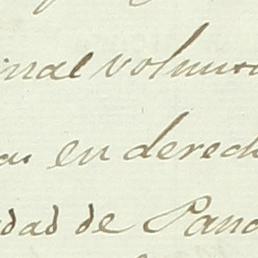 inal volunta
as en derech
dad de Pana